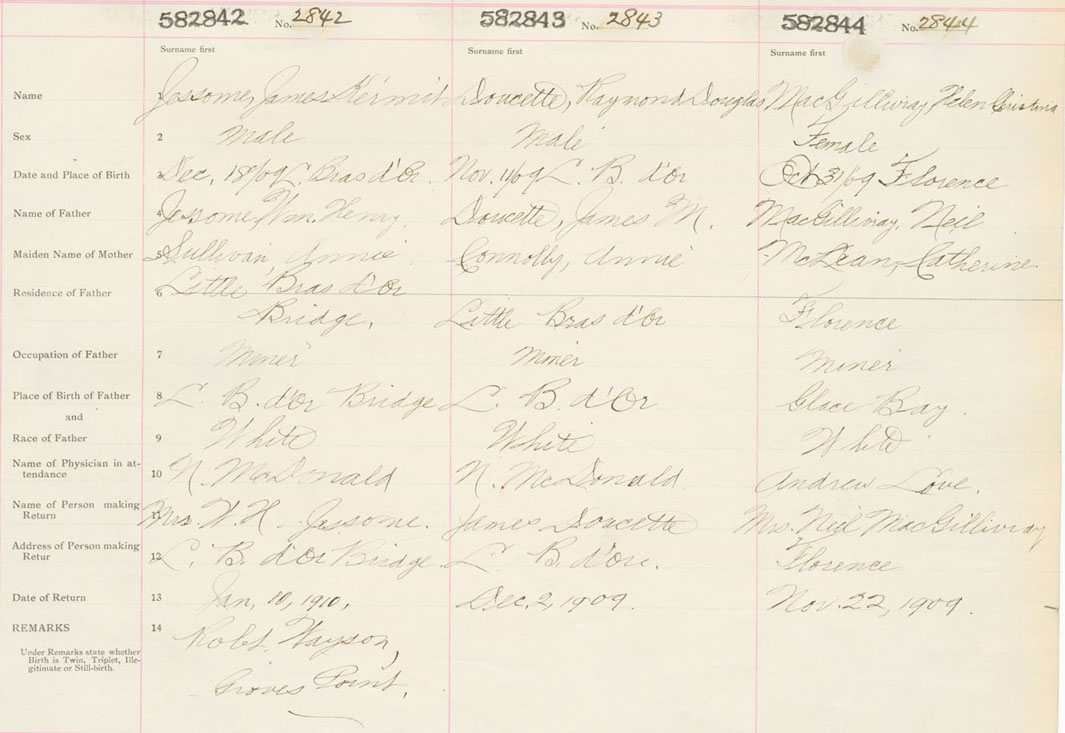 582842 No. 2842 582843 No. 2843 582844 No. 2844
Surname first Surname first Surname first
Name 1 Jessome, James Kermit Doucette, Raymond Douglas MacGillivray, Helen Christina
Sex 2 Male Male Female
Date and Place of Birth 3 Dec, 18/09 L. Bras d'Or. Nov. 1/09 L. B. d'Or Oct 31/09 Florence
Name of Father 4 Jessome, Wm. Henry. Doucette, James M. MacGillivray, Neil
Maiden Name of Mother 5 Sullivan, Annie. Connolly, Annie McLean, Catherine.
Residence of Father 6 Little Bras d'Or
Bridge, Little Bras d'Or Florence
Occupation of Father 7 Miner Miner Miner
Place of Birth of Father 8 L. B. d'Or Bridge L. B. d'Or Glace Bay.
and
Race of Father 9 White White White
Name of Physician in at-
tendance 10 N. McDonald N. McDonald. Andrew Love.
Name of Person making
Return 11 Mrs. W. H. Jessome. James Doucette Mrs. Neil MacGillivray
Address of Person making
Retur 12 L. B. d'Or Bridge. L. B. d'Or. Florence
Date of Return 13 Jan, 10, 1910, Dec. 2, 1909. Nov. 22, 1909.
REMARKS 14 Robt. Wayson,
Under Remarks state whether
Birth is Twin, Triplet, Ille-
gitimate or Still-birth.
Groves Point,